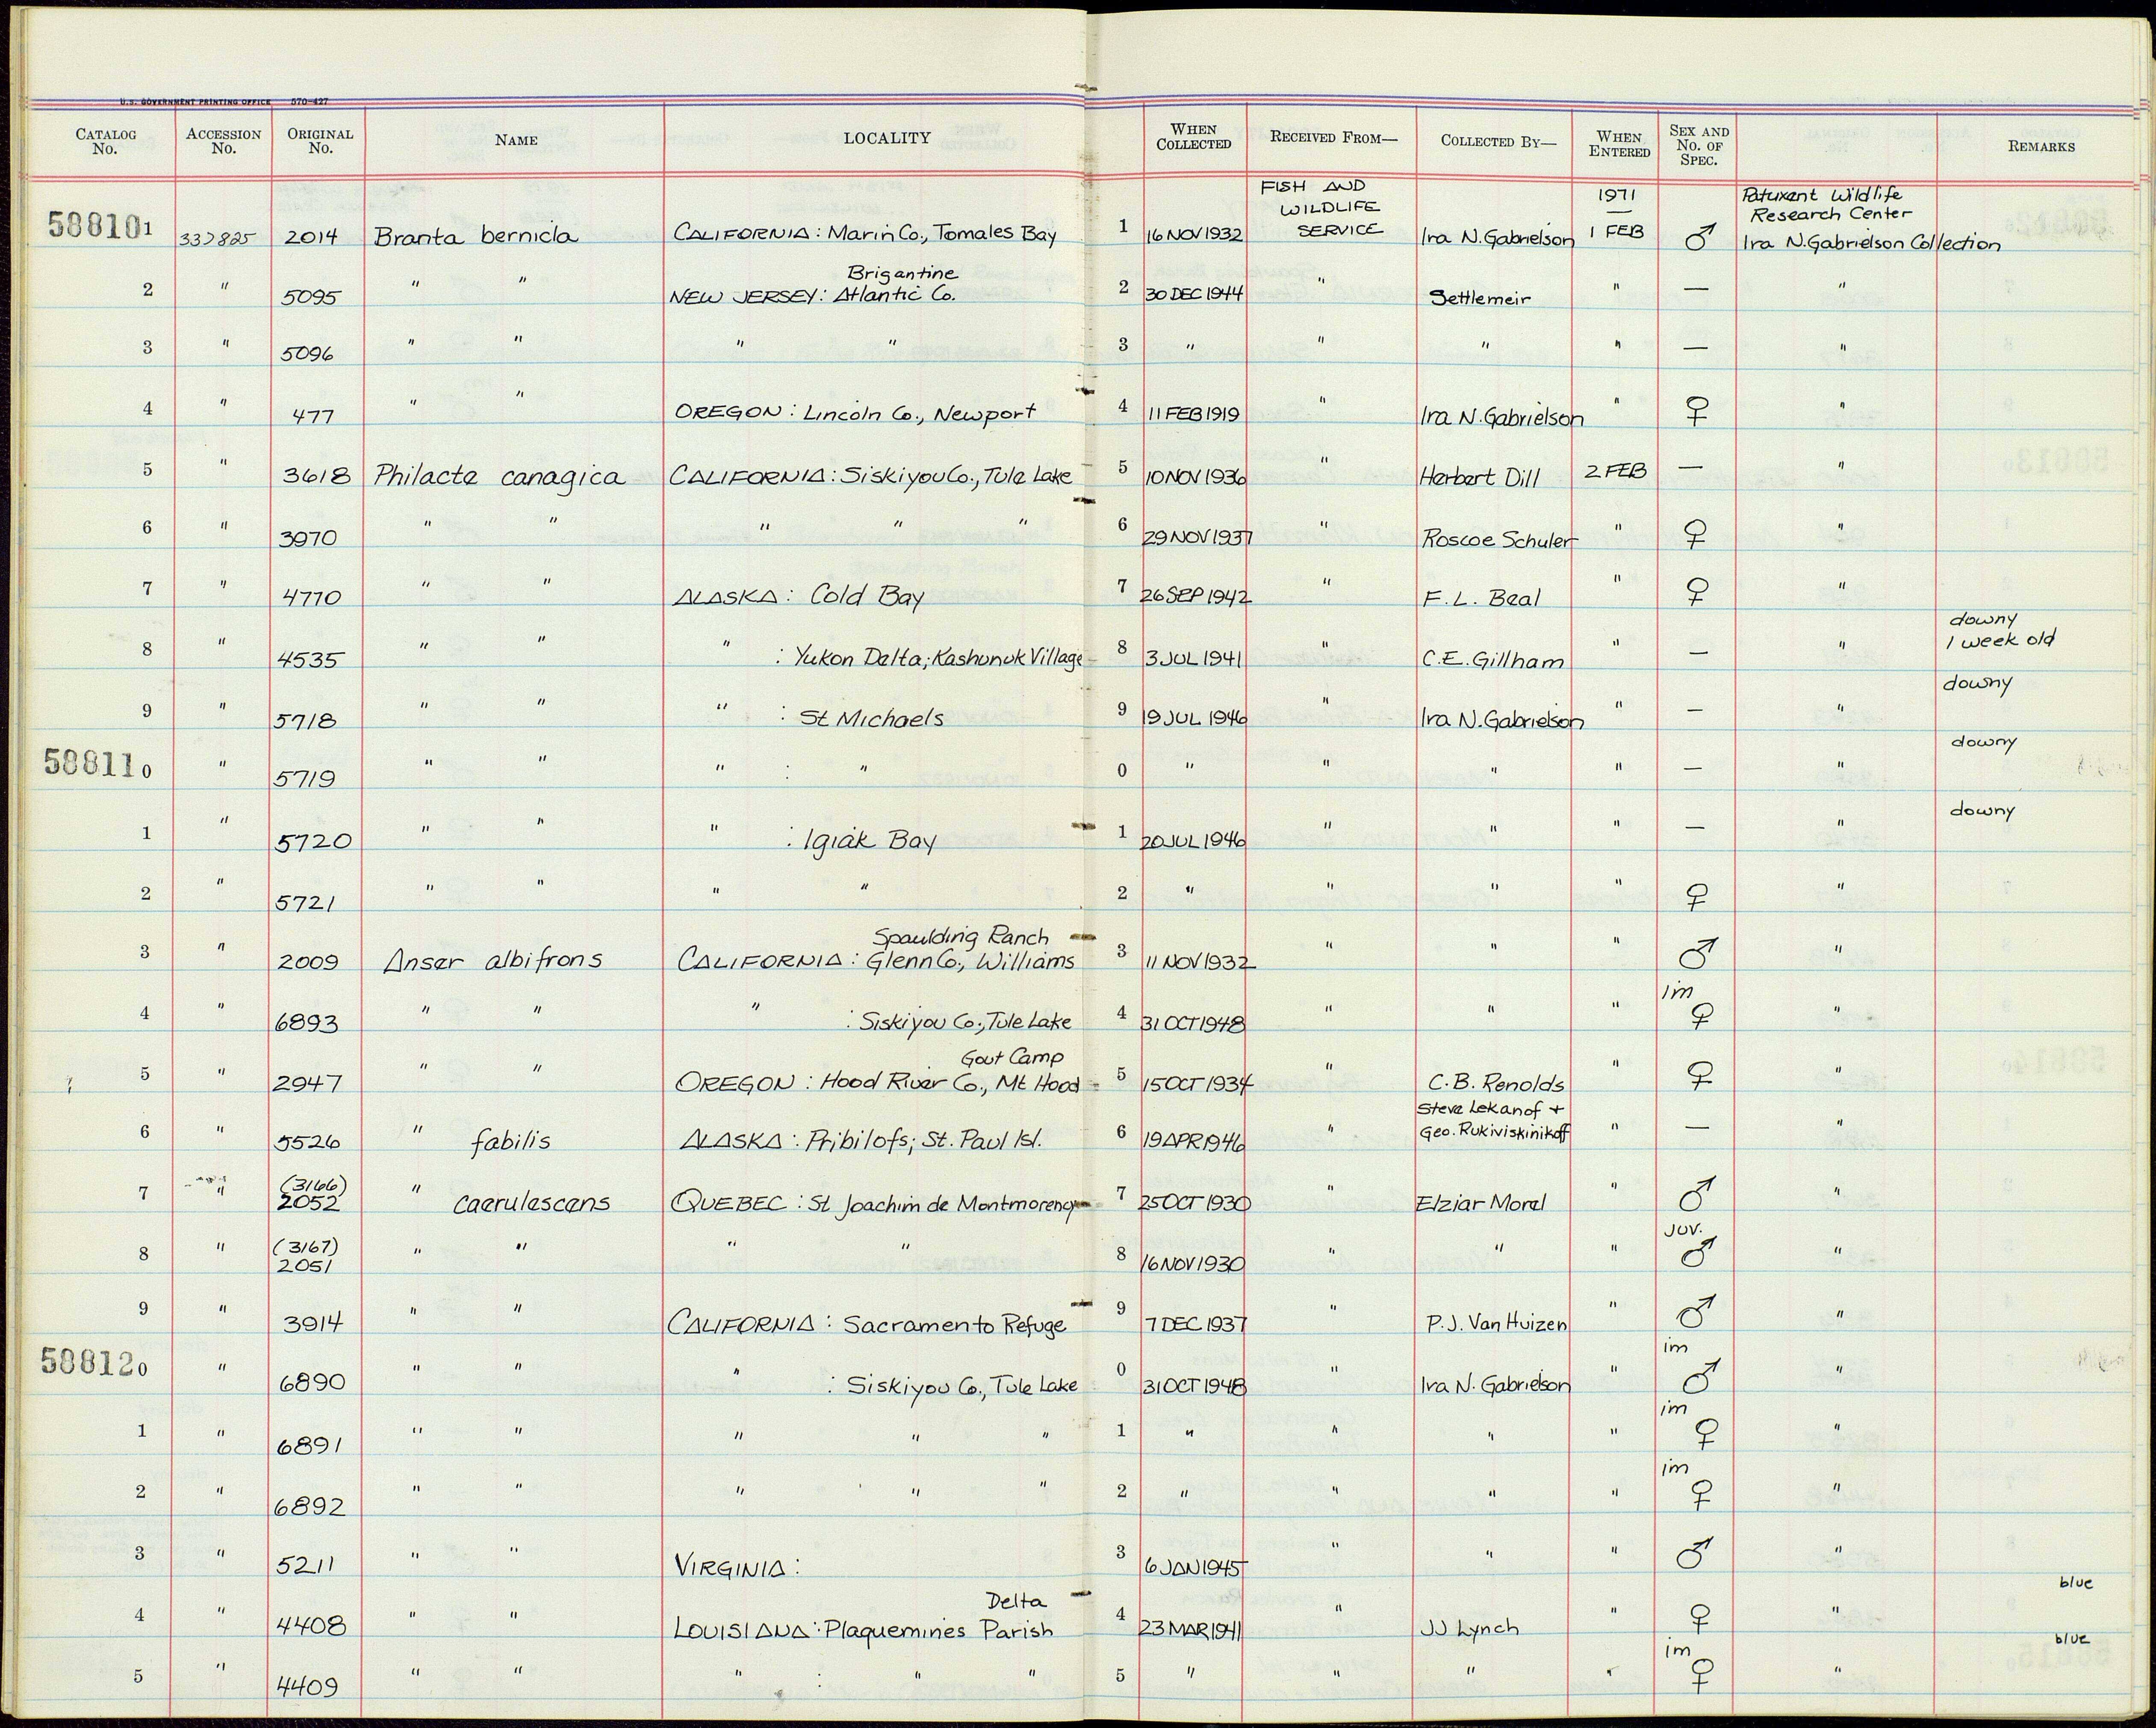 U.S. GOVERNMENT PRINTING OFFICE 570-427
CATALOG No. ACCESSION No. ORIGINAL No. NAME LOCALITY WHEN COLLECTED RECEIVED FROM— COLLECTED BY— WHEN ENTERED SEX AND No. OF SPEC. REMARKS
588101 337825 2014 Branta bernicla CALIFORNIA: Marin Co., Tomales Bay 1 16 NOV 1932 FISH AND WILDLIFE SERVICE Ira N. Gabrielson 1971 — 1 FEB ♂ Patuxent Wildlife Research Center Ira N. Gabrielson Collection
2 " 5095 " " NEW JERSEY: Atlantic Co. Brigantine 2 30 DEC 1944 " Settlemeir " — "
3 " 5096 " " " " 3 " " " " — "
4 " 477 " " OREGON: Lincoln Co., Newport 4 11 FEB 1919 " Ira N. Gabrielson " ♀ "
5 " 3618 Philacte canagica CALIFORNIA: Siskiyou Co., Tule Lake 5 10 NOV 1936 " Herbert Dill 2 FEB — "
6 " 3970 " " " " " 6 29 NOV 1937 " Roscoe Schuler " ♀ "
7 " 4770 " " ALASKA: Cold Bay 7 26 SEP 1942 " F.L. Beal " ♀ "
8 " 4535 " " " : Yukon Delta; Kashunuk Village 8 3 JUL 1941 " C.E. Gillham " — " downy 1 week old
9 " 5718 " " " : St Michaels 9 19 JUL 1946 " Ira N. Gabrielson " — " downy
588110 " 5719 " " " : " 0 " " " " — " downy
1 " 5720 " " " : Igiak Bay 1 20 JUL 1946 " " " — " downy
2 " 5721 " " " " 2 " " " " ♀ "
3 " 2009 Anser albifrons CALIFORNIA: Glenn Co., Williams Spaulding Ranch 3 11 NOV 1932 " " " ♂ "
4 " 6893 " " " : Siskiyou Co., Tule Lake 4 31 OCT 1948 " " " im ♀ "
5 " 2947 " " OREGON: Hood River Co., Mt Hood Govt Camp 5 15 OCT 1934 " C.B. Renolds " ♀ "
6 " 5526 " fabilis ALASKA: Pribilofs; St. Paul Isl. 6 19 APR 1946 " Steve Lekanof + Geo. Rukiviskinikoff " — "
7 " (3166) 2052 " caerulescens QUEBEC: St Joachim de Montmorency 7 25 OCT 1930 " Elziar Morel " ♂ "
8 " (3167) 2051 " " " " 8 16 NOV 1930 " " " juv. ♂ "
9 " 3914 " " CALIFORNIA: Sacramento Refuge 9 7 DEC 1937 " P.J. Van Huizen " ♂ "
588120 " 6890 " " " : Siskiyou Co., Tule Lake 0 31 OCT 1948 " Ira N. Gabrielson " im ♂ "
1 " 6891 " " " " " 1 " " " " im ♀ "
2 " 6892 " " " " " 2 " " " " im ♀ "
3 " 5211 " " VIRGINIA: 3 6 JAN 1945 " " " ♂ "
4 " 4408 " " LOUISIANA: Plaquemines Parish Delta 4 23 MAR 1941 " JJ Lynch " ♀ " blue
5 " 4409 " " " : " " 5 " " " " im ♀ " blue